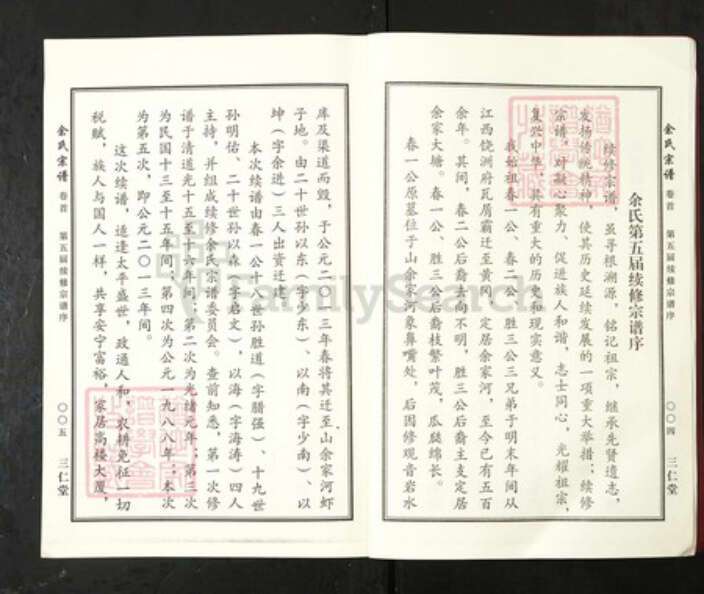 余氏宗谱
卷首
第五届续修宗谱序
〇〇四
三仁堂
余氏第五届续修宗谱序
续修宗谱，虽寻根溯源，铭记祖宗，继承先贤遗志，
发扬传统精神，使其历史延续发展的一项重大举措；续修
宗谱，对凝心聚力、促进族人和谐，志士同心，光耀祖宗，
复兴中华，具有重大的历史和现实意义。
我始祖春一公、春二公、胜三公三兄弟于明末年间从
江西饶洲府瓦屑霸迁至黄冈，定居余家河，至今已有五百
余年。其间，春二公后裔去向不明，胜三公后裔主支定居
余家大塘。春一公、胜三公后裔枝繁叶茂，瓜瓞绵长。
春一公原墓位于山余家河象鼻嘴处，后因修观音岩水
库及渠道而毁，于公元二〇一三年春将其迁至山余家河虾
子地。由二十世孙以东（字少东）、以南（字少南）、以
坤（字余进）三人出资迁成。
本次续谱由春一公十八世孙胜道（字腊强）、十九世
孙明佑、二十世孙以森（字启文），以海（字海涛）四人
主持，并组成续修余氏宗谱委员会。查前知悉，第一次修
谱于清道光十五至十六年间；第二次为光绪元年；第三次
为民国十三至十五年间；第四次为公元一九八八年；本次
为第五次，即公元二〇一三年间。
这次续谱，适逢太平盛世，政通人和，农耕免征一切
税赋，族人与国人一样，共享安宁富裕，家居高楼大厦，
余氏宗谱
卷首
第五届续修宗谱序
〇〇五
三仁堂
FamilySearch